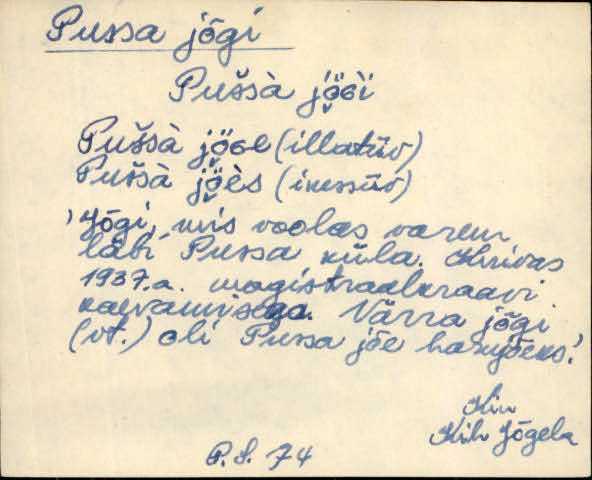 Pussa jõgi
Pušsà jö̬ɢì
Pušsà jö̬ɢe (illatiiv)
Pušsà jö̬ès (inessiiv)
'Jõgi, mis voolas varem
läbi Pussa küla. Hävivas
1937.a. magistraalkraavi
kaevamisega. Närra jõgi
(vt.) oli Pussa jõe harujõeks.'
Khn
Kih Jõgela
P.S. 74